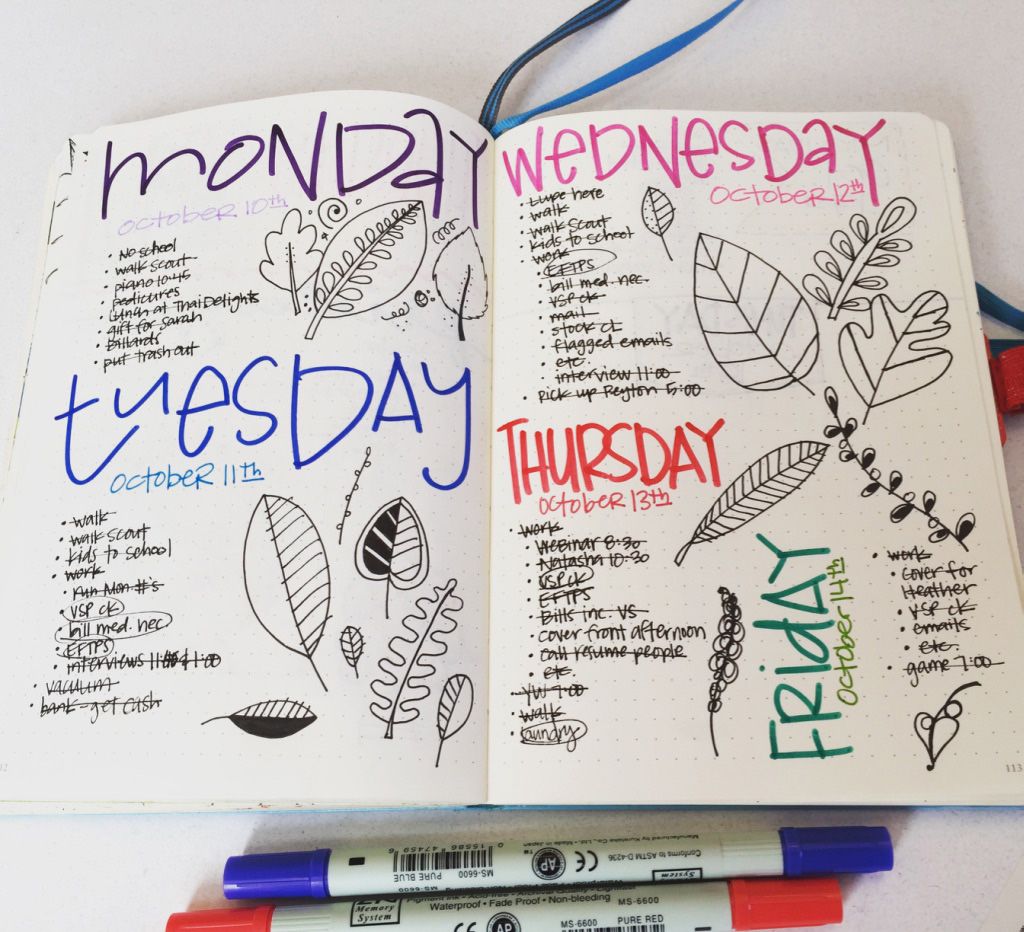 MONDAY
OCTOBER 10th
• No school
• walk scout
• piano 10:45
• pedicures
• Lunch at Thai Delights
• gift for Sarah
• Billards
• put trash out
tuesDAY
OCTOBER 11th
• walk
• walk scout
• kids to school
• work
• run Mon #'s
• VSP ck
• bill med. nec
• EFTPS
• interviews 1:00
• vacuum
• bank - get cash
WEDNESDAY
OCTOBER 12th
• Lupe here
• walk
• walk Scout
• kids to school
• work
• EFTPS
• bill med. nec.
• VSP ck
• mail
• stock CL
• flagged emails
• etc.
• interview 11:00
• pick up Peyton 5:00
THURSDAY
OCTOBER 13th
• work
• Webinar 8:30
• Natasha 10:30
• VSP ck
• EFTPS
• Bills inc. VS
• cover front afternoon
• call resume people
• etc.
• YW 7:00
• walk
• laundry
FRIDAY
OCTOBER 14th
• work
• cover for
Heather
• VSP ck
• emails
• etc.
• game 7:00
113
Manufactured by Kuretake Co., Ltd. • Made in Japan
Conforms to ASTM D-4236
0 15586 47459 6
MS-6600 PURE BLUE
AP
CE
System
Memory
System
Pigment Ink • Acid Free • Archival Quality • Lightfast
Waterproof • Fade Proof • Non-bleeding
MS-6600
MS-6600 PURE RED
CE
AP